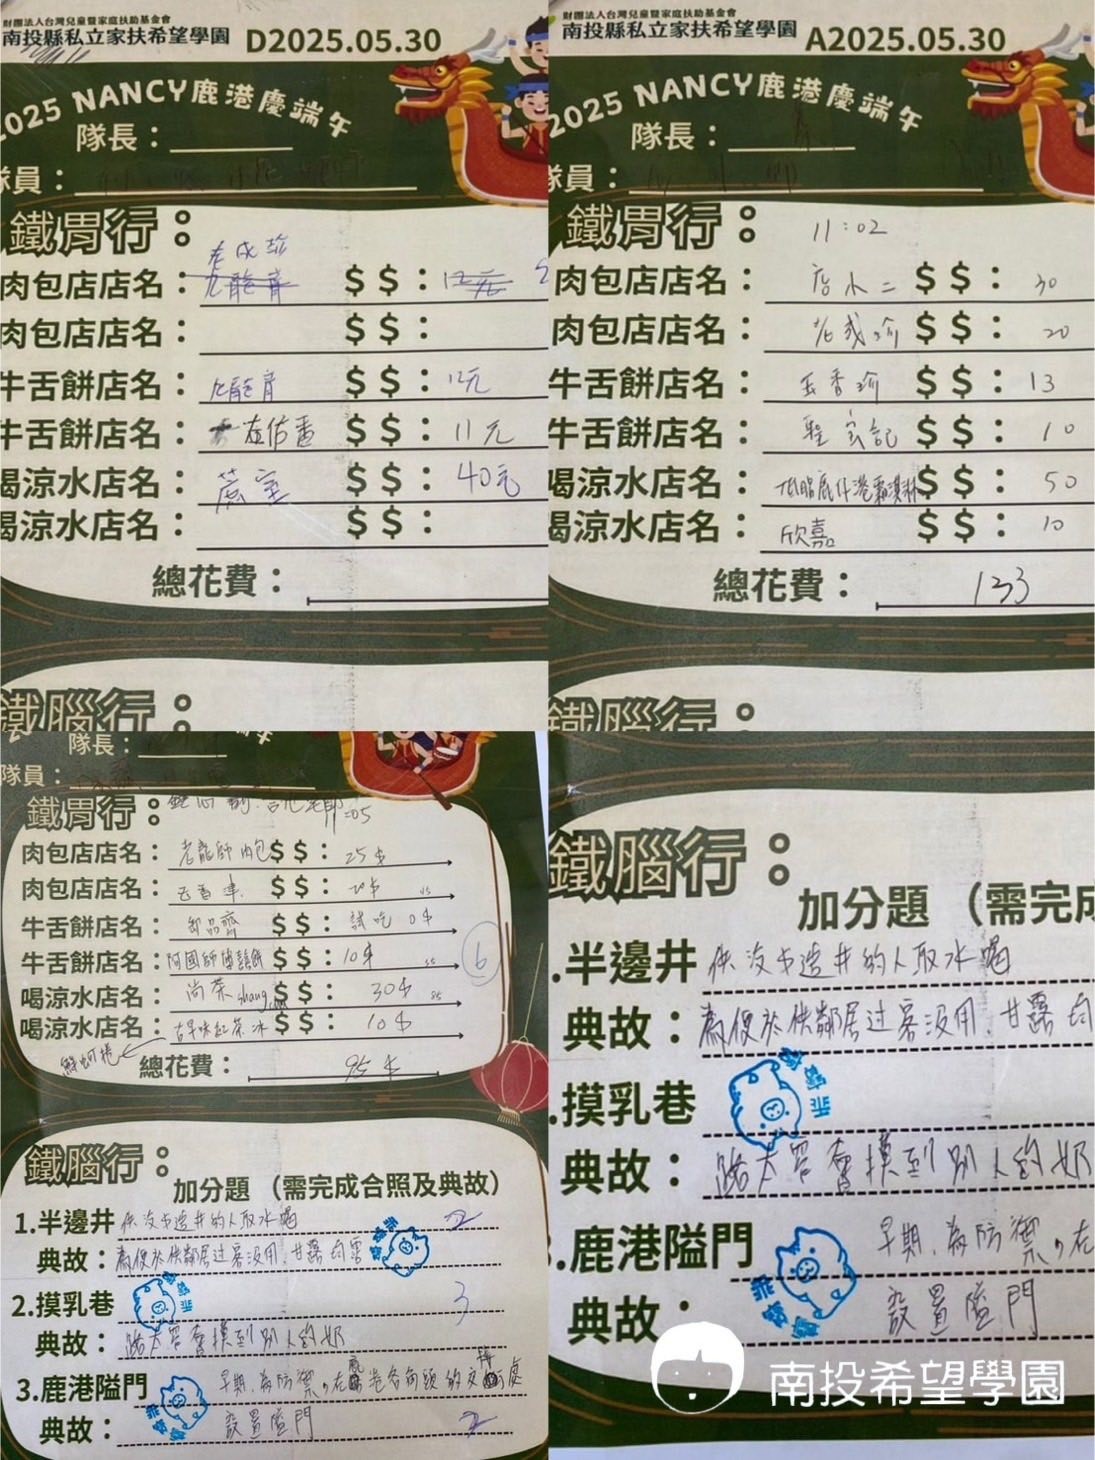 財團法人台灣兒童暨家庭扶助基金會
南投縣私立家扶希望學園 D2025.05.30
2025 NANCY鹿港慶端午
隊長：
隊員：
鐵胃行：
老成珍
肉包店店名： $$：12元
肉包店店名： $$：
牛舌餅店名： $$：12元
牛舌餅店名： $$：11元
喝涼水店名： $$：40元
喝涼水店名： $$：
總花費：
鐵腦行：
財團法人台灣兒童暨家庭扶助基金會
南投縣私立家扶希望學園 A2025.05.30
2025 NANCY鹿港慶端午
隊長：
隊員：
鐵胃行： 11:02
肉包店店名：店小二 $$：30
肉包店店名：老成珍 $$：20
牛舌餅店名：玉香珍 $$：13
牛舌餅店名： $$：10
喝涼水店名： $$：50
喝涼水店名：欣嘉 $$：10
總花費：133
鐵腦行：
隊長：
隊員：
鐵胃行：
肉包店店名：老龍師肉包 $$：25$
肉包店店名： $$：20$
牛舌餅店名： $$：試吃 0$
牛舌餅店名：阿國師傅 $$：10$
喝涼水店名：尚茶 shang $$：30$
喝涼水店名：古早味紅茶冰 $$：10$
總花費：95$
6
鐵腦行：
加分題（需完成合照及典故）
1.半邊井 供沒有造井的人取水喝 2
典故：為便於供鄰居过客汲用，甘露均霑
2.摸乳巷 3
典故：路太窄會摸到別人的奶
3.鹿港隘門 早期，為防禦，在鹿港各角頭的交界處
典故：設置隘門 2
鐵腦行：
加分題（需完成
.半邊井 供沒有造井的人取水喝
典故：為便於供鄰居过客汲用，甘露均
.摸乳巷
典故：路太窄會摸到別人的奶
3.鹿港隘門 早期，為防禦，在
典故：設置隘門
南投希望學園